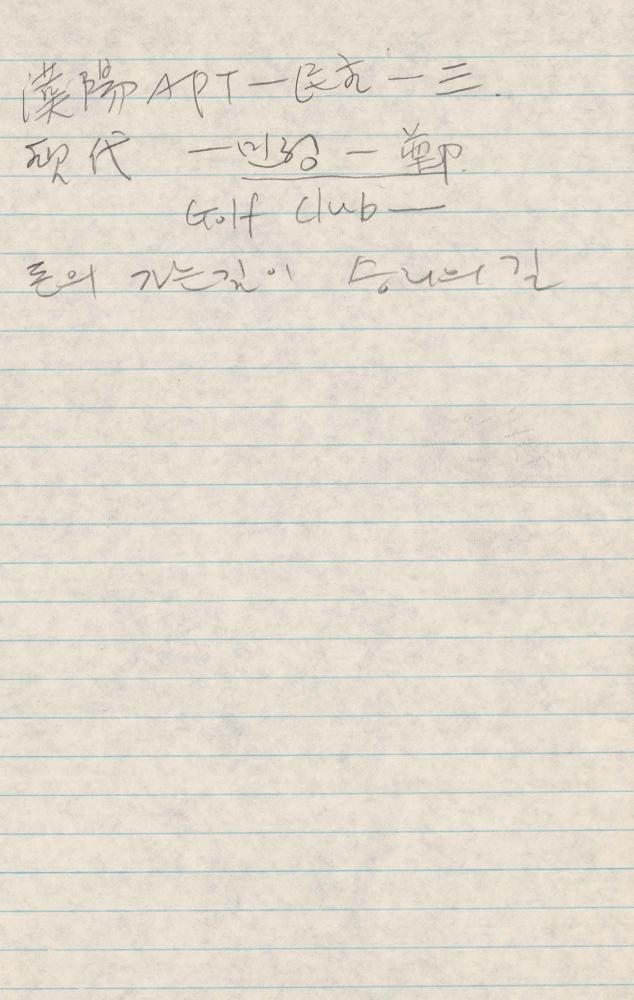 漢陽 APT — 民主 — 三.
現代 — 민정 — 鄭.
Golf Club —
돈의 가는길이 승리의 길